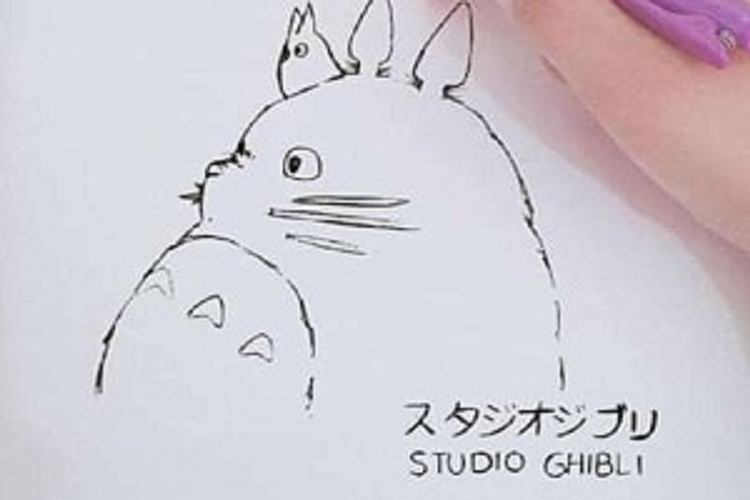 スタジオジブリ
STUDIO GHIBLI